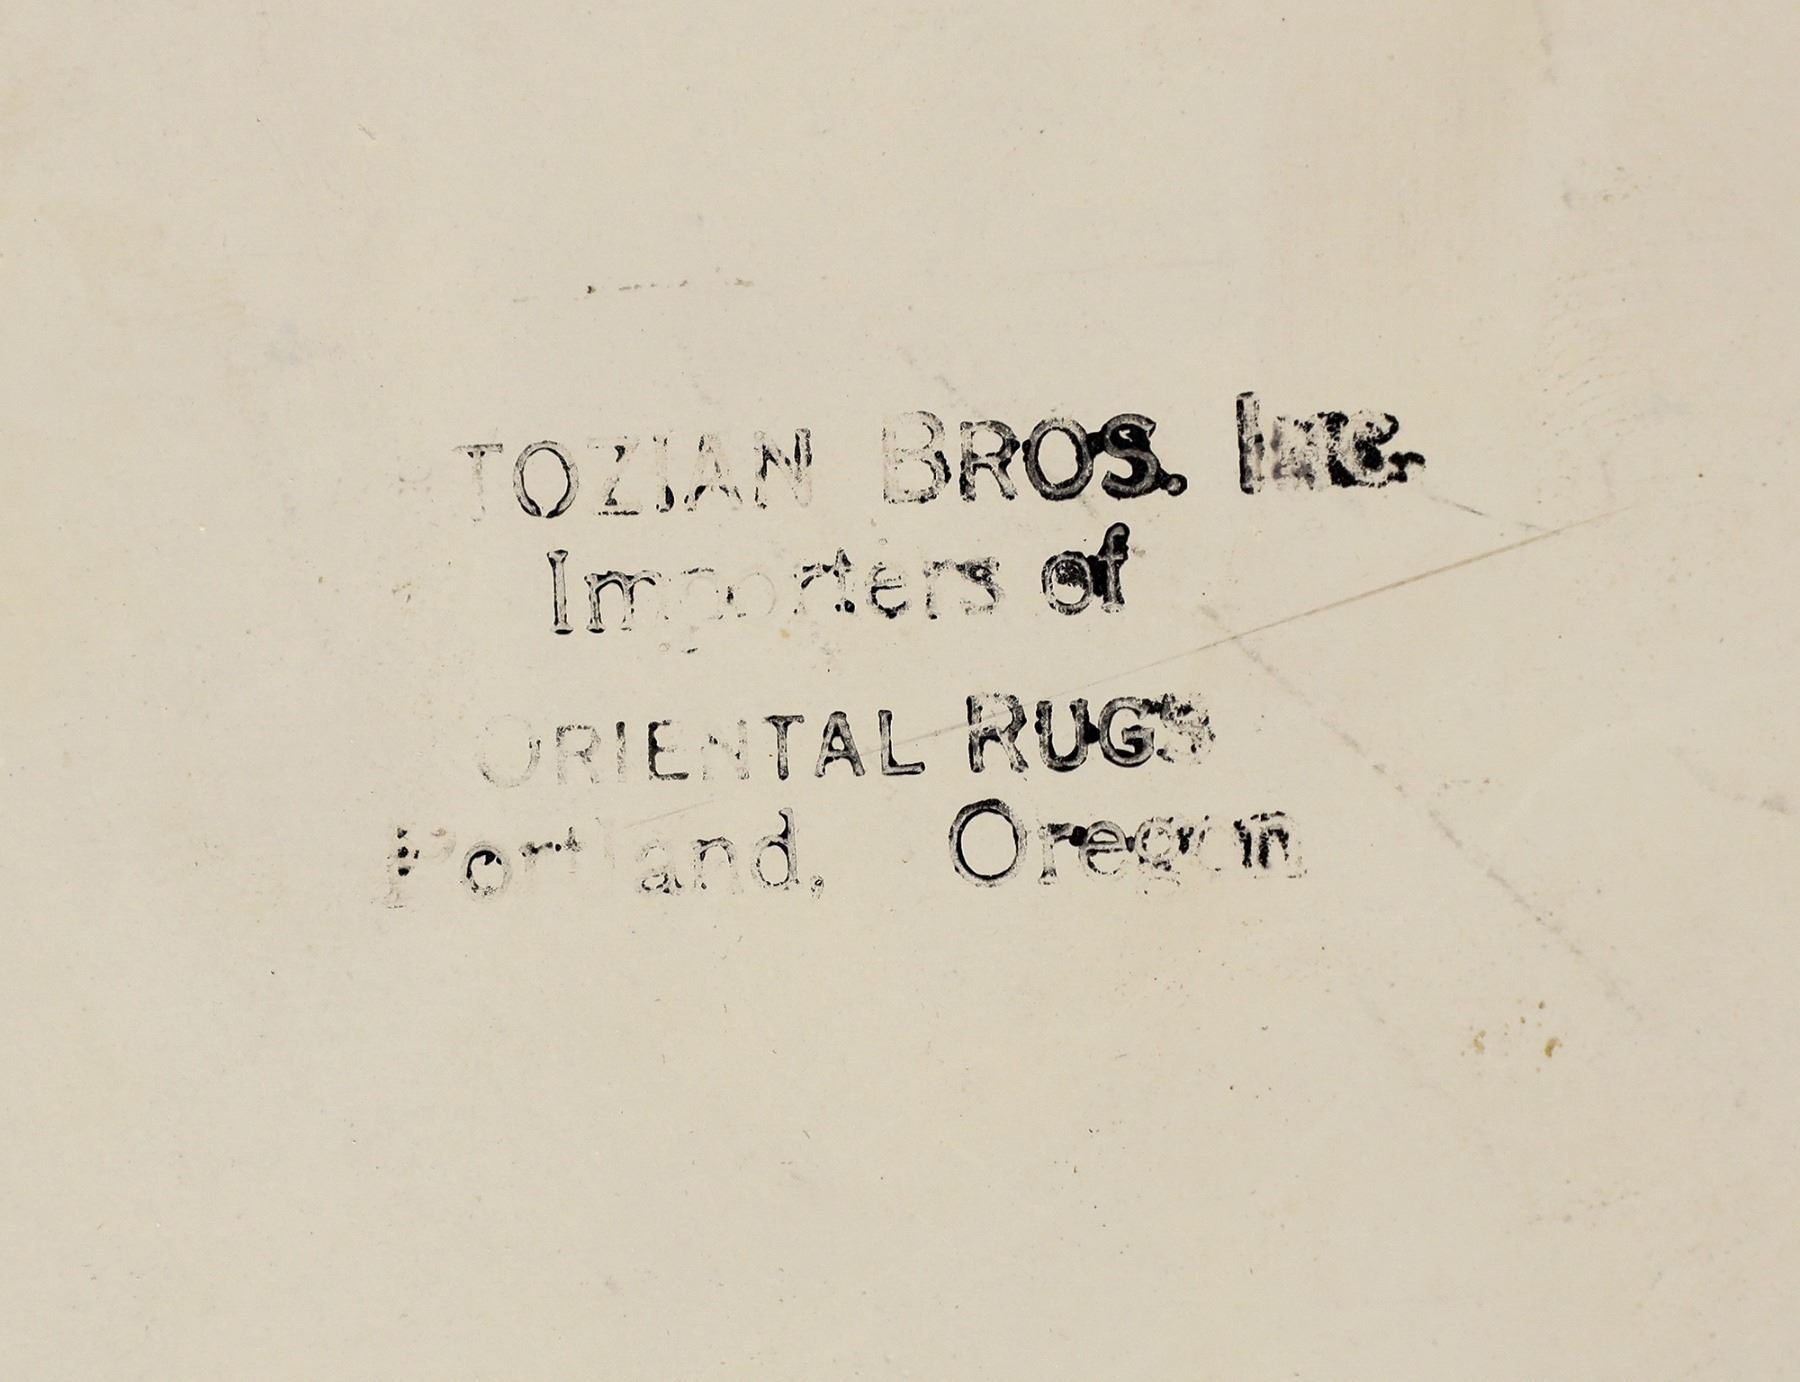 TOZIAN BROS. INC.
Importers of
ORIENTAL RUGS
Portland, Oregon